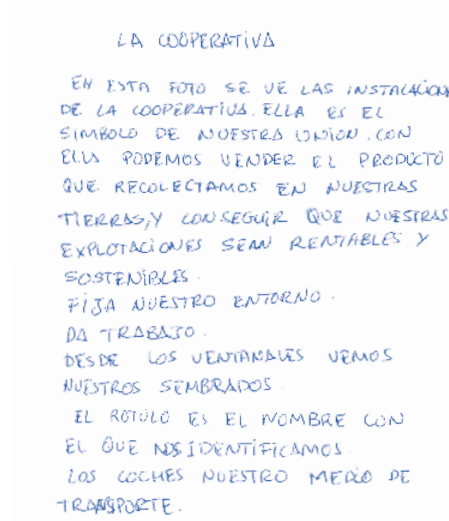 LA COOPERATIVA
EN ESTA FOTO SE VE LAS INSTALACION
DE LA COOPERATIVA. ELLA ES EL
SIMBOLO DE NUESTRA UNION. CON
ELLA PODEMOS VENDER EL PRODUCTO
QUE RECOLECTAMOS EN NUESTRAS
TIERRAS, Y CONSEGUIR QUE NUESTRAS
EXPLOTACIONES SEAN RENTABLES Y
SOSTENIBLES.
FIJA NUESTRO ENTORNO.
DA TRABAJO.
DESDE LOS VENTANALES VEMOS
NUESTROS SEMBRADOS.
EL ROTULO ES EL NOMBRE CON
EL QUE NOS IDENTIFICAMOS.
LOS COCHES NUESTRO MEDIO DE
TRANSPORTE.